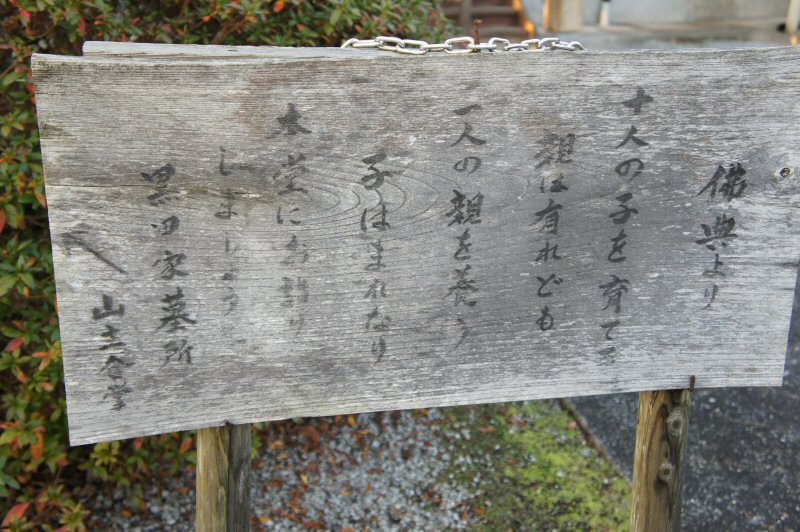 佛典より
十人の子を育てる
親は有れども
一人の親を養う
子はまれなり
本堂にお詣り
しましょう
黒田家墓所